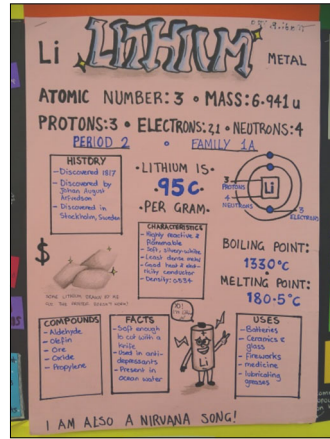 Li LITHIUM METAL
ATOMIC NUMBER: 3 • MASS: 6.941 u
PROTONS: 3 • ELECTRONS: 2,1 • NEUTRONS: 4
PERIOD 2 • FAMILY 1A
HISTORY
- Discovered 1817
- Discovered by
Johan August
Arfvedson
- Discovered in
Stockholm, Sweden
• LITHIUM IS •
95¢
• PER GRAM •
3
PROTONS
4
NEUTRONS
Li
3
ELECTRONS
CHARACTERISTICS
- Highly reactive &
flammable
- Soft, silvery-white
- Least dense metal
- Good heat &
conductor
- Density: 0.534
$
SOME LITHIUM DRAWN BY ME
BOILING POINT:
1330°C
•
MELTING POINT:
180.5°C
COMPOUNDS
- Aldehyde
- Olefin
- Ore
- Oxide
- Propylene
FACTS
- Soft enough
to cut with a
knife
- Used in anti-
depressants
- Present in
ocean water
Li
USES
- Batteries
- Ceramics &
glass
- Fireworks
- medicine
- lubricating
greases
I AM ALSO A NIRVANA SONG!